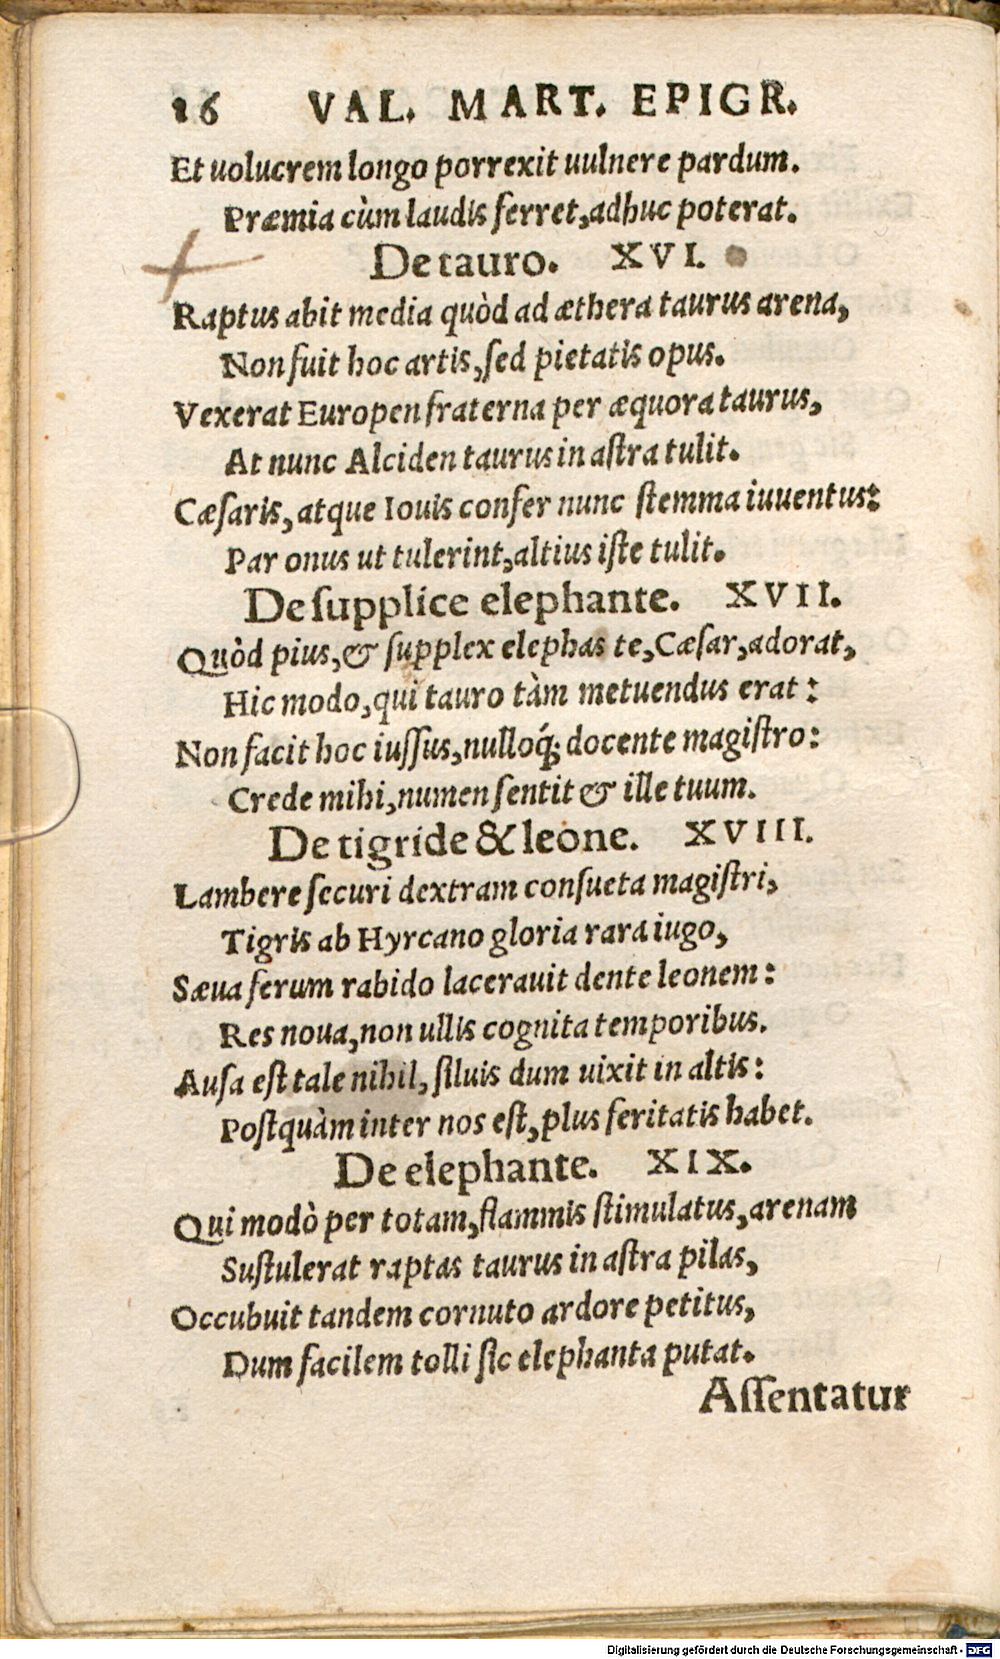 16 VAL. MART. EPIGR.
Et uolucrem longo porrexit uulnere pardum.
Præmia cùm laudis ferret, adhuc poterat.
De tauro. XVI.
Raptus abit media quòd ad æthera taurus arena,
Non fuit hoc artis, ſed pietatis opus.
Vexerat Europen fraterna per æquora taurus,
At nunc Alciden taurus in aſtra tulit.
Cæſaris, atque Iouis confer nunc ſtemma iuuentus:
Par onus ut tulerint, altius iſte tulit.
De ſupplice elephante. XVII.
Quòd pius, & ſupplex elephas te, Cæſar, adorat,
Hic modo, qui tauro tàm metuendus erat:
Non facit hoc iuſſus, nulloq́; docente magiſtro:
Crede mihi, numen ſentit & ille tuum.
De tigride & leone. XVIII.
Lambere ſecuri dextram conſueta magiſtri,
Tigris ab Hyrcano gloria rara iugo,
Sæua ferum rabido lacerauit dente leonem:
Res noua, non ullis cognita temporibus.
Auſa eſt tale nihil, ſiluis dum uixit in altis:
Poſtquàm inter nos eſt, plus feritatis habet.
De elephante. XIX.
Qui modò per totam, flammis ſtimulatus, arenam
Suſtulerat raptas taurus in aſtra pilas,
Occubuit tandem cornuto ardore petitus,
Dum facilem tolli ſic elephanta putat.
Aſſentatur
Digitalisierung gefördert durch die Deutsche Forschungsgemeinschaft - DFG